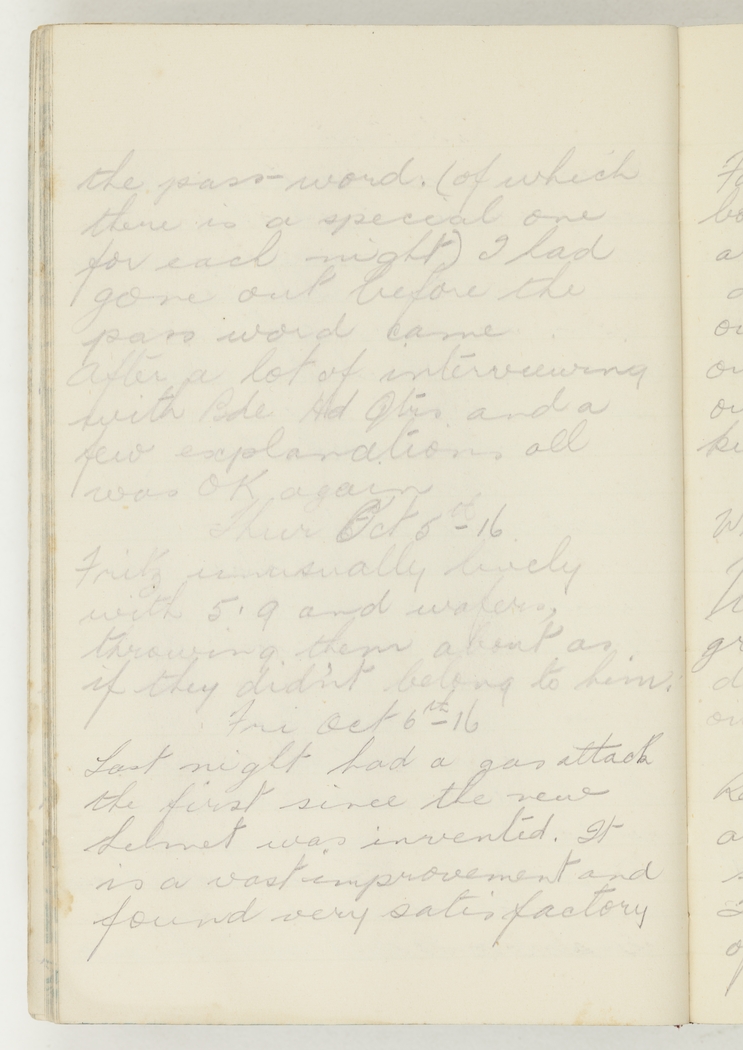 the pass-word. (of which
there is a special one
for each night) I had
gone out before the
pass word came
After a lot of interviewing
with Bde Hd Qtrs and a
few explanations all
was OK again
Thur Oct 5th-16.
Fritz unusually lively
with 5.9 and
throwing them about as
if they didn't belong to him.
Fri Oct 6th-16
Last night had a gas attack
the first since the new
helmet was invented. It
is a vast improvement and
found very satisfactory